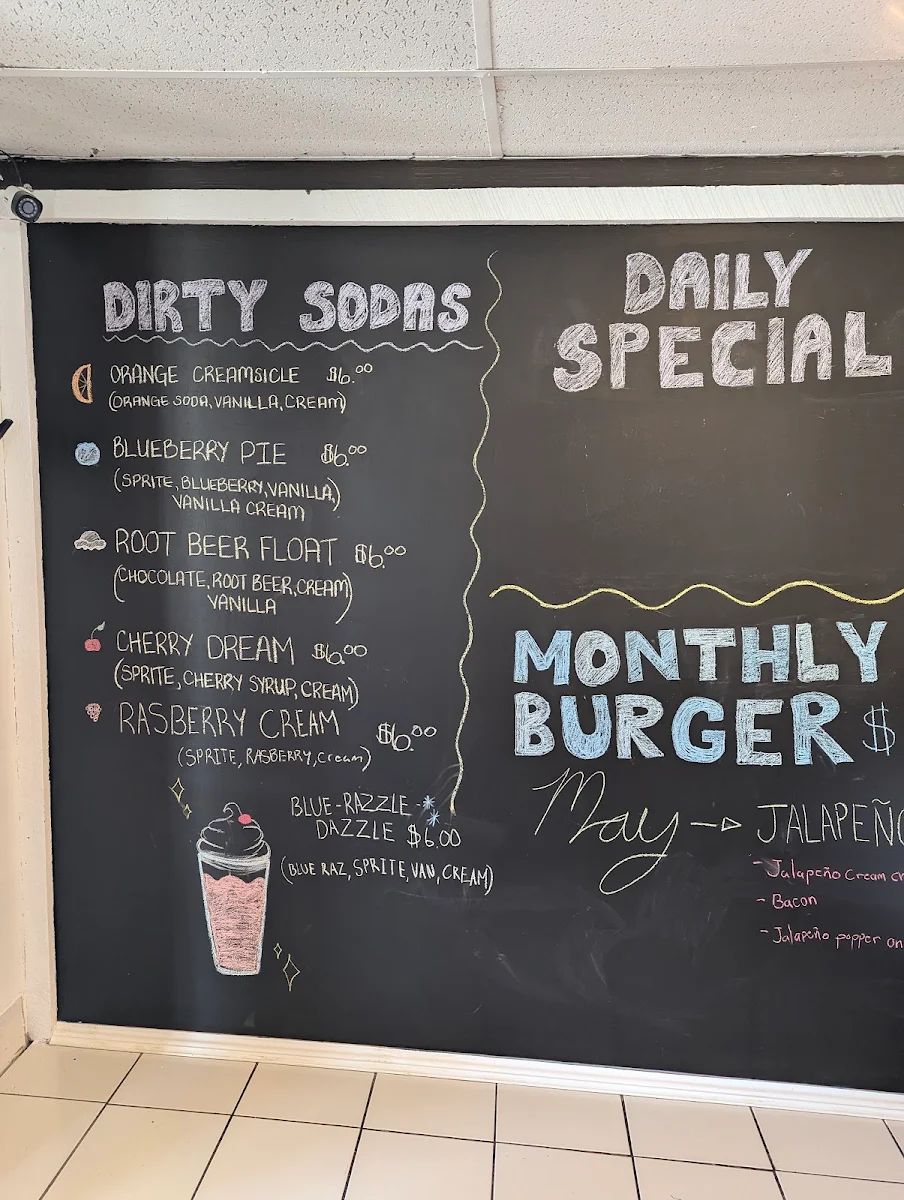 DIRTY SODAS
ORANGE CREAMSICLE $6.00
(ORANGE SODA, VANILLA, CREAM)
BLUEBERRY PIE $6.00
(SPRITE, BLUEBERRY, VANILLA,
VANILLA CREAM)
ROOT BEER FLOAT $6.00
(CHOCOLATE, ROOT BEER, CREAM
VANILLA)
CHERRY DREAM $6.00
(SPRITE, CHERRY SYRUP, CREAM)
RASBERRY CREAM $6.00
(SPRITE, RASBERRY, cream)
BLUE-RAZZLE-
DAZZLE $6.00
(BLUE RAZ, SPRITE, VAN, CREAM)
DAILY
SPECIAL
MONTHLY
BURGER $
May → JALAPEÑO
- Jalapeño Cream
- Bacon
- Jalapeño popper